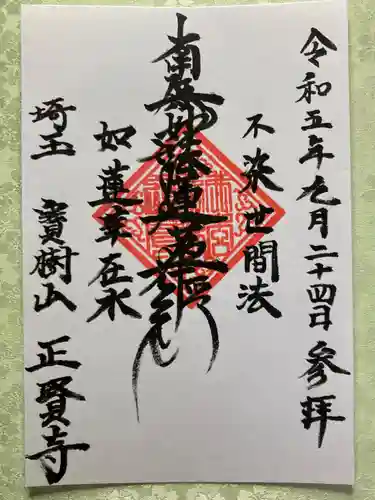 令和五年九月二十四日参拝
不染世間法
南無妙法蓮華経
如蓮華在水
埼玉 寶樹山 正賢寺